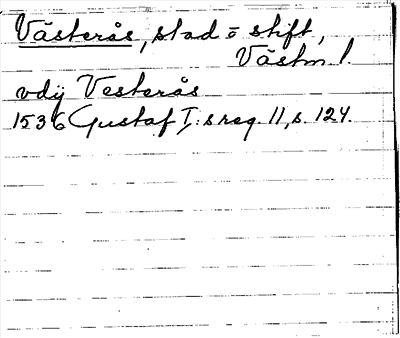 Västerås, stad o stift,
Västm l.
vdÿ Vesterås
1536 Gustaf I:s reg. 11, s. 124.